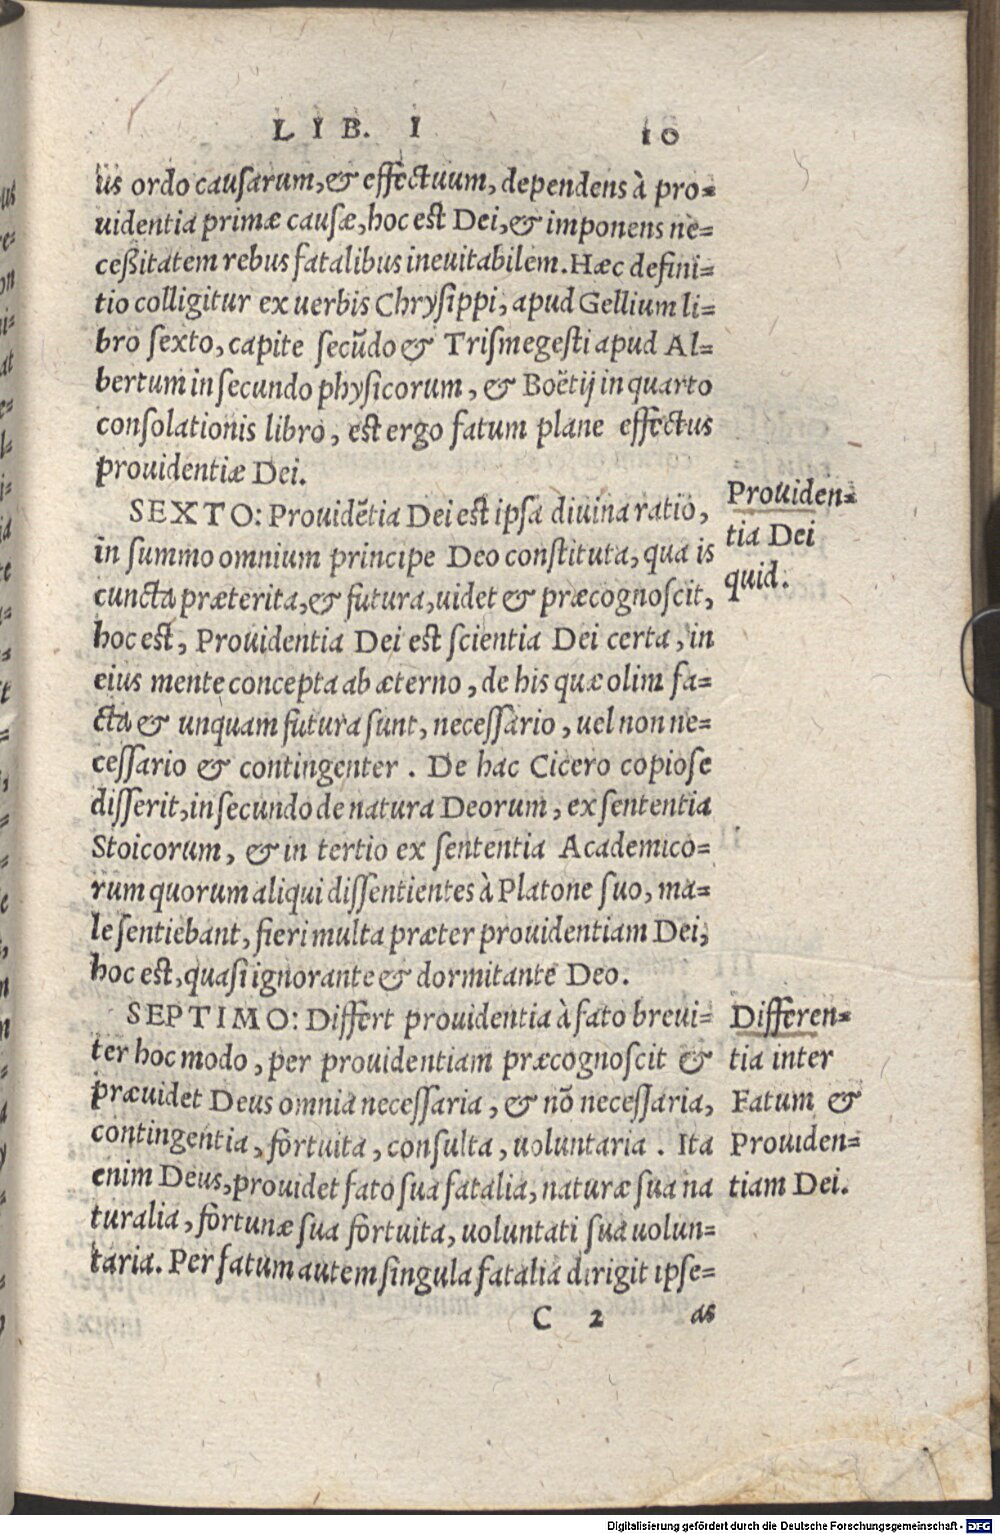 LIB. I 10
us ordo causarum, & effectuum, dependens à pro=
uidentia primæ causæ, hoc est Dei, & imponens ne=
ceßitatem rebus fatalibus ineuitabilem. Hæc defini=
tio colligitur ex uerbis Chrysippi, apud Gellium li=
bro sexto, capite secũdo & Trismegesti apud Al=
bertum in secundo physicorum, & Boëtij in quarto
consolationis libro, est ergo fatum plane effectus
prouidentiæ Dei.
SEXTO: Prouidẽtia Dei est ipsa diuina ratio,
in summo omnium principe Deo constituta, qua is
cuncta præterita, & futura, uidet & præcognoscit,
hoc est, Prouidentia Dei est scientia Dei certa, in
eius mente concepta ab æterno, de his quæ olim fa=
cta & unquam futura sunt, necessario, uel non ne=
cessario & contingenter. De hac Cicero copiose
disserit, in secundo de natura Deorum, ex sententia
Stoicorum, & in tertio ex sententia Academico=
rum quorum aliqui dissentientes à Platone suo, ma=
le sentiebant, fieri multa præter prouidentiam Dei,
hoc est, quasi ignorante & dormitante Deo.
Prouiden=
tia Dei
quid.
SEPTIMO: Differt prouidentia à fato breui=
ter hoc modo, per prouidentiam præcognoscit &
præuidet Deus omnia necessaria, & nõ necessaria,
contingentia, fortuita, consulta, uoluntaria. Ita
enim Deus, prouidet fato sua fatalia, naturæ sua na
turalia, fortunæ sua fortuita, uoluntati sua uolun=
taria. Per fatum autem singula fatalia dirigit ipse=
Differen=
tia inter
Fatum &
Prouiden=
tiam Dei.
C 2 as
Digitalisierung gefördert durch die Deutsche Forschungsgemeinschaft - DFG